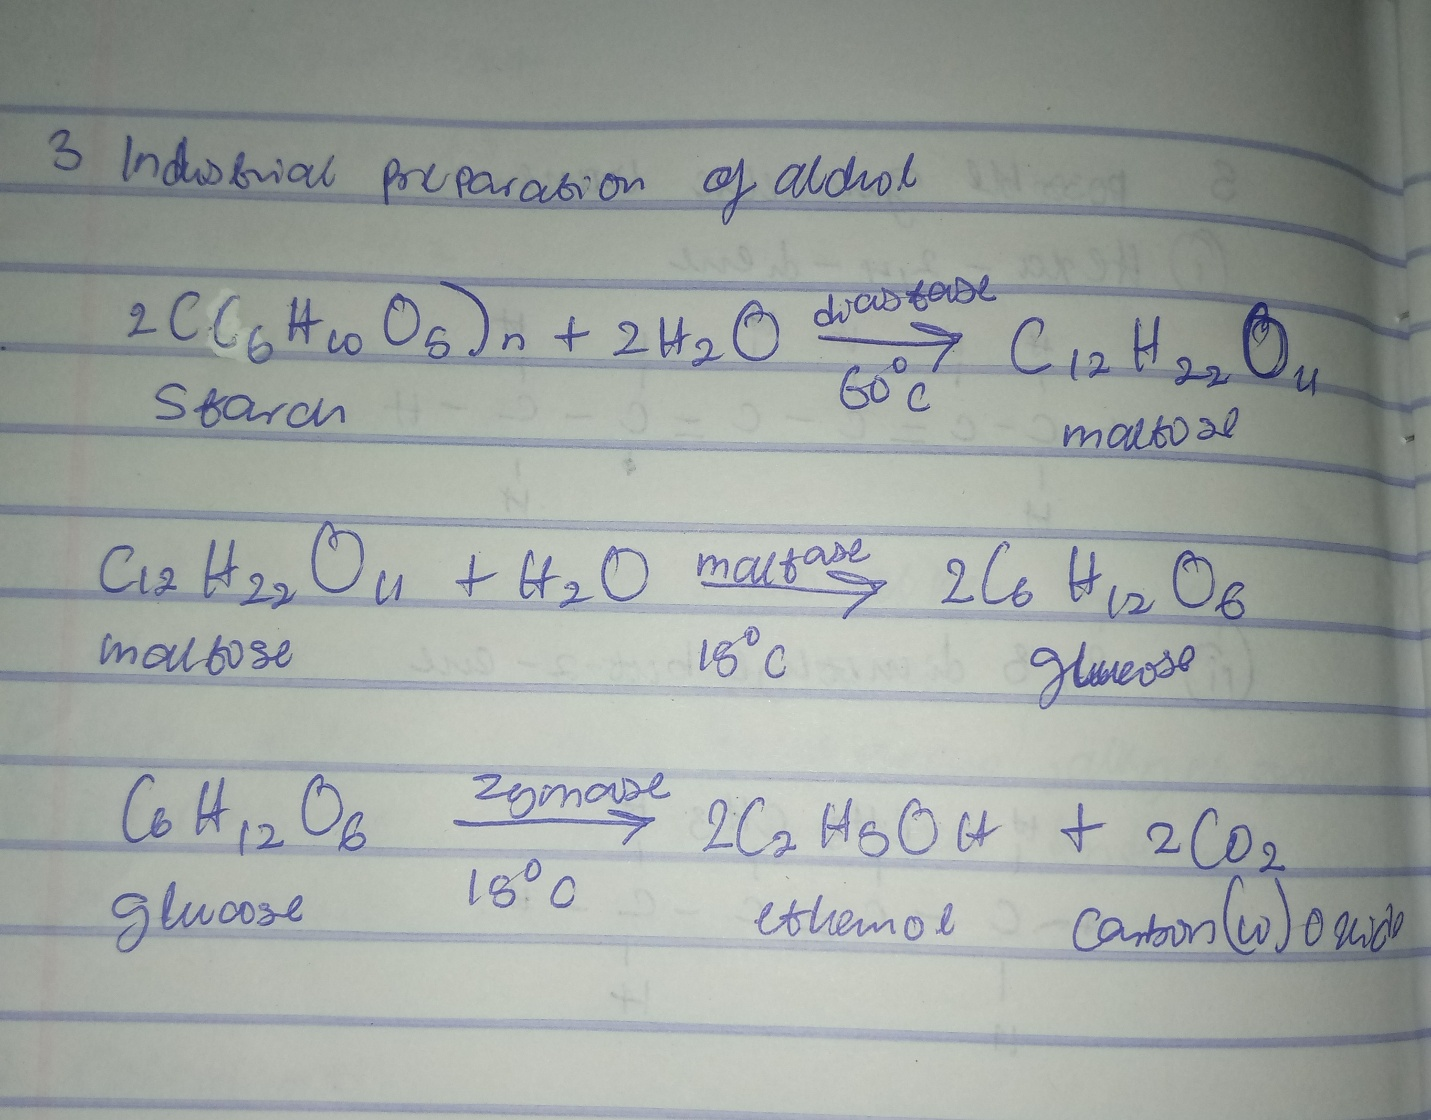 3 Industrial preparation of alcohol
2(C6H10O5)n + 2H2O diastase → 60°C C12H22O11
Starch maltose
C12H22O11 + H2O maltase → 18°C 2C6H12O6
maltose glucose
C6H12O6 zymase → 18°C 2C2H5OH + 2CO2
glucose ethemol Carbon(iv)oxide